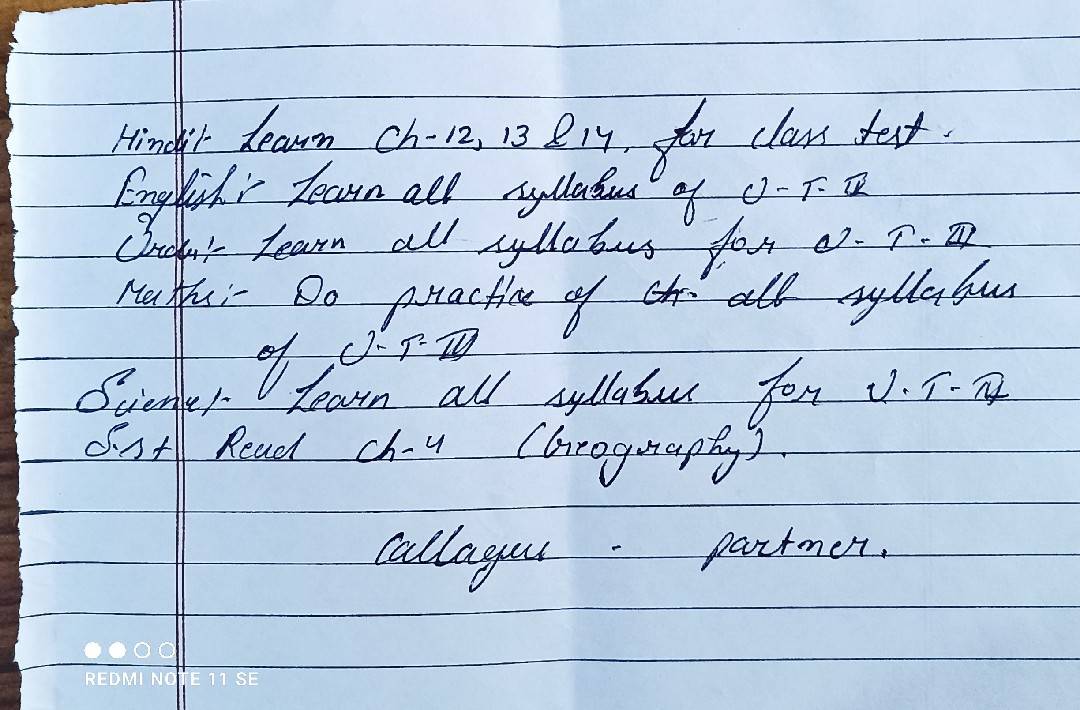 Hindi:- Learn Ch-12, 13 & 14, for class test.
English:- Learn all syllabus of U-T-IV
Urdu:- Learn all syllabus for U-T-IV
Maths:- Do practice of ch- all syllabus
of U-T-IV
Science:- Learn all syllabus for U.T-IV
S.st Read ch-4 (Geography).
Callague - partner.
REDMI NOTE 11 SE